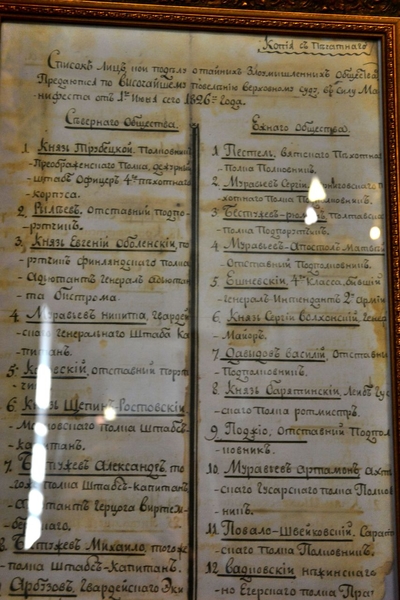 Копія съ печатнаго
Списокъ лицъ, кои по дѣлу о тайныхъ злоумышленныхъ обществъ
предаются по высочайшему повелѣнію верховному суду, въ силу Ма-
нифеста отъ 1го Июня сего 1826го года.
Сѣвернаго Общества.
1. Князь Трубецкой, Полковник
Преображенскаго Полка, дежурный
штабъ Офицеръ 4го пѣхотнаго
корпуса.
2. Рылѣевъ, Отставный подпо-
рутчикъ.
3. Князь Евгеній Оболенскій, по-
рутчикъ Финляндскаго полка
Адъютантъ генералъ адъютан-
та Бистрома.
4. Муравьевъ Никита, Гвардей-
скаго генеральнаго Штаба Ка-
питанъ.
5. Каховскій, отставный порут-
чикъ.
6. Князь Щепинъ-Ростовскій
Московскаго полка Штабсъ-
капитанъ.
7. Бестужевъ Александръ, то
го полка Штабсъ-капитанъ
Адъютантъ герцога Виртем-
бергскаго.
8. Бестужевъ Михайло, того же
полка Штабсъ-Капитанъ.
Арбузовъ, Гвардейскаго Эки
Южнаго общества.
1. Пестель, Вятскаго Пѣхотнаго
Полка Полковникъ.
2. Муравьевъ Сергій, Черниговскаго Пѣ-
хотнаго Полка Подполковникъ.
3. Бестужевъ-Рюминъ, Полтавска
Полка Подпорутчикъ.
4. Муравьевъ-Апостолъ Матвѣй
Отставный Подполковникъ.
5. Юшневскій, 4го класса, бывшій
генералъ Интендантъ 2й арміи
6. Князь Сергій Волконскій, Генера
Майоръ.
7. Давидовъ Василій, Отставный
Подполковникъ.
8. Князь Барятинскій, Лейбъ Гу-
скаго Полка ротмистръ.
9. Поджіо, Отставный Подпол
ковникъ.
10. Муравьевъ Артамонъ, Ахт
скаго Гусарскаго полка Полков
никъ.
11. Повало-Швейковскій, Сарат
скаго Полка Полковникъ.
12. Вадковскій, Нѣжинскаго
но Егерскаго полка Прап